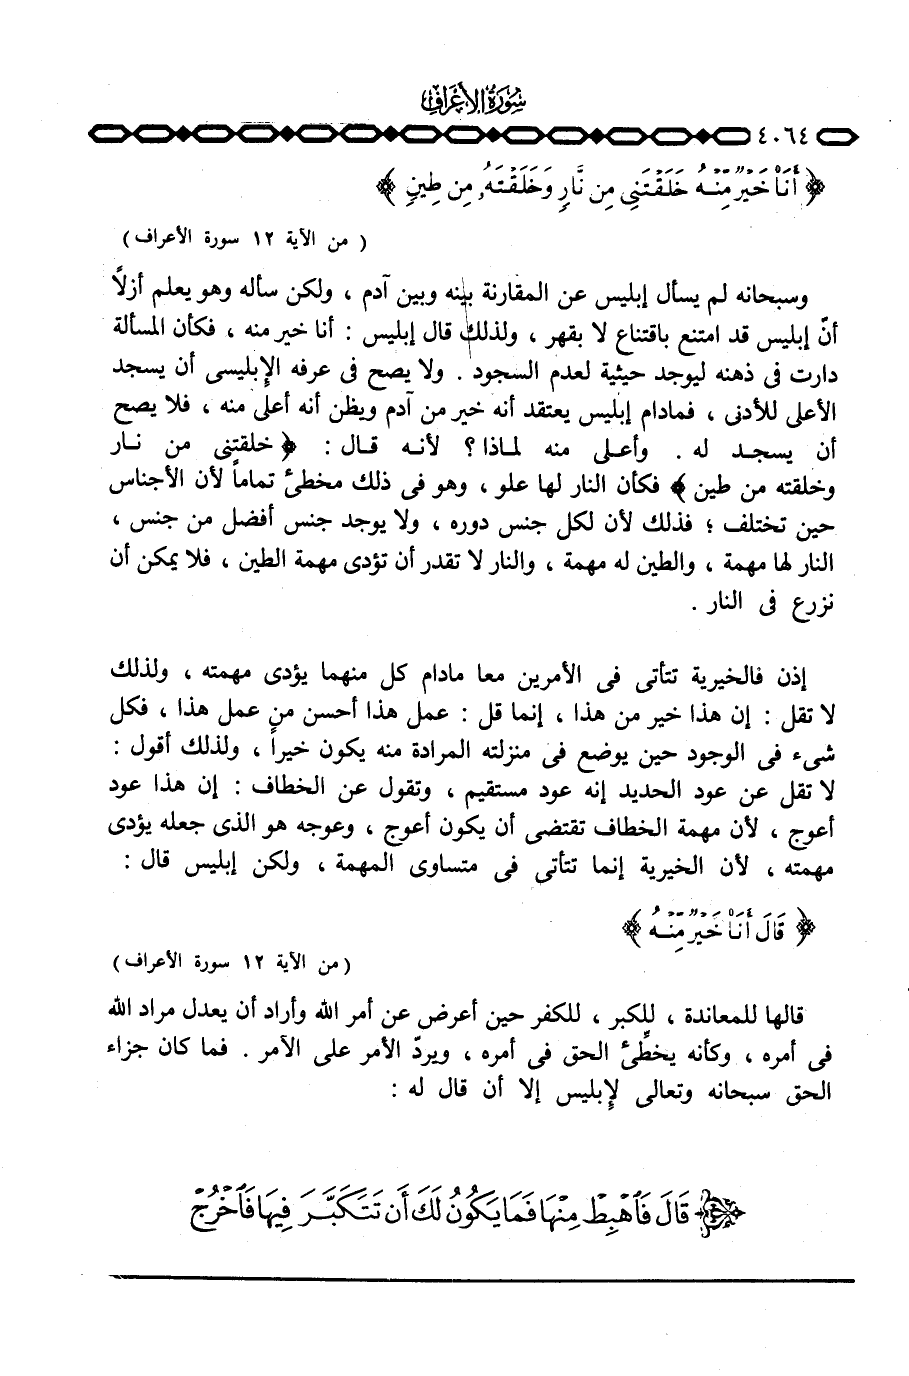 سُورَةُ الأَعْرَاف
٤٠٦٤
﴿ أَنَا۠ خَيْرٌ مِّنْهُ خَلَقْتَنِى مِن نَّارٍ وَخَلَقْتَهُۥ مِن طِينٍ ﴾
( من الآية ١٢ سورة الأعراف )
وسبحانه لم يسأل إبليس عن المقارنة بينه وبين آدم ، ولكن سأله وهو يعلم أزلاً
أنّ إبليس قد امتنع باقتناع لا بقهر ، ولذلك قال إبليس : أنا خير منه ، فكأن المسألة
دارت فى ذهنه ليوجد حيثية لعدم السجود . ولا يصح فى عرفه الإبليسى أن يسجد
الأعلى للأدنى ، فمادام إبليس يعتقد أنه خير من آدم ويظن أنه أعلى منه ، فلا يصح
أن يسجد له . وأعلى منه لماذا ؟ لأنه قال : ﴿ خلقتنى من نار
وخلقته من طين ﴾ فكأن النار لها علو ، وهو فى ذلك مخطئ تماماً لأن الأجناس
حين تختلف ؛ فذلك لأن لكل جنس دوره ، ولا يوجد جنس أفضل من جنس ،
النار لها مهمة ، والطين له مهمة ، والنار لا تقدر أن تؤدى مهمة الطين ، فلا يمكن أن
نزرع فى النار .
إذن فالخيرية تتأتى فى الأمرين معا مادام كل منهما يؤدى مهمته ، ولذلك
لا تقل : إن هذا خير من هذا ، إنما قل : عمل هذا أحسن من عمل هذا ، فكل
شىء فى الوجود حين يوضع فى منزلته المرادة منه يكون خيراً ، ولذلك أقول :
لا تقل عن عود الحديد إنه عود مستقيم ، وتقول عن الخطاف : إن هذا عود
أعوج ، لأن مهمة الخطاف تقتضى أن يكون أعوج ، وعوجه هو الذى جعله يؤدى
مهمته ، لأن الخيرية إنما تتأتى فى متساوى المهمة ، ولكن إبليس قال :
﴿ قَالَ أَنَا۠ خَيْرٌ مِّنْهُ ﴾
( من الآية ١٢ سورة الأعراف )
قالها للمعاندة ، للكبر ، للكفر حين أعرض عن أمر الله وأراد أن يعدل مراد الله
فى أمره ، وكأنه يخطِّئ الحق فى أمره ، ويردّ الأمر على الآمر . فما كان جزاء
الحق سبحانه وتعالى لإبليس إلا أن قال له :
قَالَ فَٱهْبِطْ مِنْهَا فَمَا يَكُونُ لَكَ أَن تَتَكَبَّرَ فِيهَا فَٱخْرُجْ